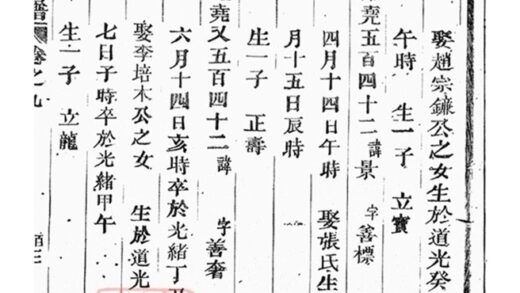 娶趙宗鐮公之女生於道光癸
午時 生一子 立賓
堯五百四十二 諱景 字善標
四月十四日午時 娶張氏生
月十五日辰時
生一子 正壽
堯又五百四十二 諱 字善奢
六月十四日亥時卒於光緒丁
娶李培木公之女 生於道光
七日子時卒於光緒甲午
生一子 立龍
譜 卷之九